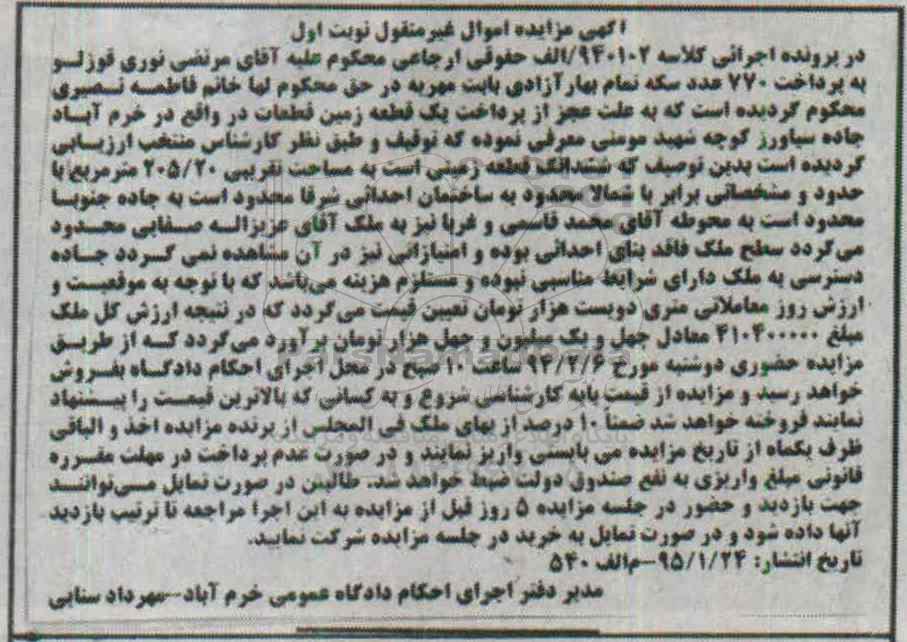 آگهی مزایده اموال غیرمنقول نوبت اول
در پرونده اجرائی کلاسه ۹۴۰۱۰۲/الف حقوقی ارجاعی محکوم علیه آقای مرتضی نوری قوزلو
به پرداخت ۷۷۰ عدد سکه تمام بهار آزادی بابت مهریه در حق محکوم لها خانم فاطمه نصیری
محکوم گردیده است که به علت عجز از پرداخت یک قطعه زمین قطعات در واقع در خرم آباد
جاده سیاورز کوچه شهید مومنی معرفی نموده که توقیف و طبق نظر کارشناس منتخب ارزیابی
گردیده است بدین توصیف که ششدانگ قطعه زمینی است به مساحت تقریبی ۲۰۵/۲۰ مترمربع با
حدود و مشخصاتی برابر با شمالا محدود به ساختمان احداثی شرقا محدود است به جاده جنوبا
محدود است به محوطه آقای محمد قاسمی و غربا نیز به ملک آقای عزیزاله صفایی محدود
می گردد سطح ملک فاقد بنای احداثی بوده و امتیازاتی نیز در آن مشاهده نمی گردد جاده
دسترسی به ملک دارای شرایط مناسبی نبوده و مستلزم هزینه می‌باشد که با توجه به موقعیت و
ارزش روز معاملاتی متری دویست هزار تومان تعیین قیمت می گردد که در نتیجه ارزش کل ملک
مبلغ ۴۱۰۴۰۰۰۰۰ معادل چهل و یک میلیون و چهل هزار تومان برآورد می‌گردد که از طریق
مزایده حضوری دوشنبه مورخ ۹۴/۲/۶ ساعت ۱۰ صبح در محل اجرای احکام دادگاه بفروش
خواهد رسید و مزایده از قیمت پایه کارشناسی شروع و به کسانی که بالاترین قیمت را پیشنهاد
نمایند فروخته خواهد شد ضمناً ۱۰ درصد از بهای ملک فی المجلس از برنده مزایده اخذ و الباقی
ظرف یکماه از تاریخ مزایده می بایستی واریز نمایند و در صورت عدم پرداخت در مهلت مقرره
قانونی مبلغ واریزی به نفع صندوق دولت ضبط خواهد شد. طالبین در صورت تمایل می‌توانند
جهت بازدید و حضور در جلسه مزایده ۵ روز قبل از مزایده به این اجرا مراجعه تا ترتیب بازدید
آنها داده شود و در صورت تمایل به خرید در جلسه مزایده شرکت نمایید.
تاریخ انتشار: ۹۵/۱/۲۴-م/الف ۵۴۰
مدیر دفتر اجرای احکام دادگاه عمومی خرم آباد-مهرداد سنایی